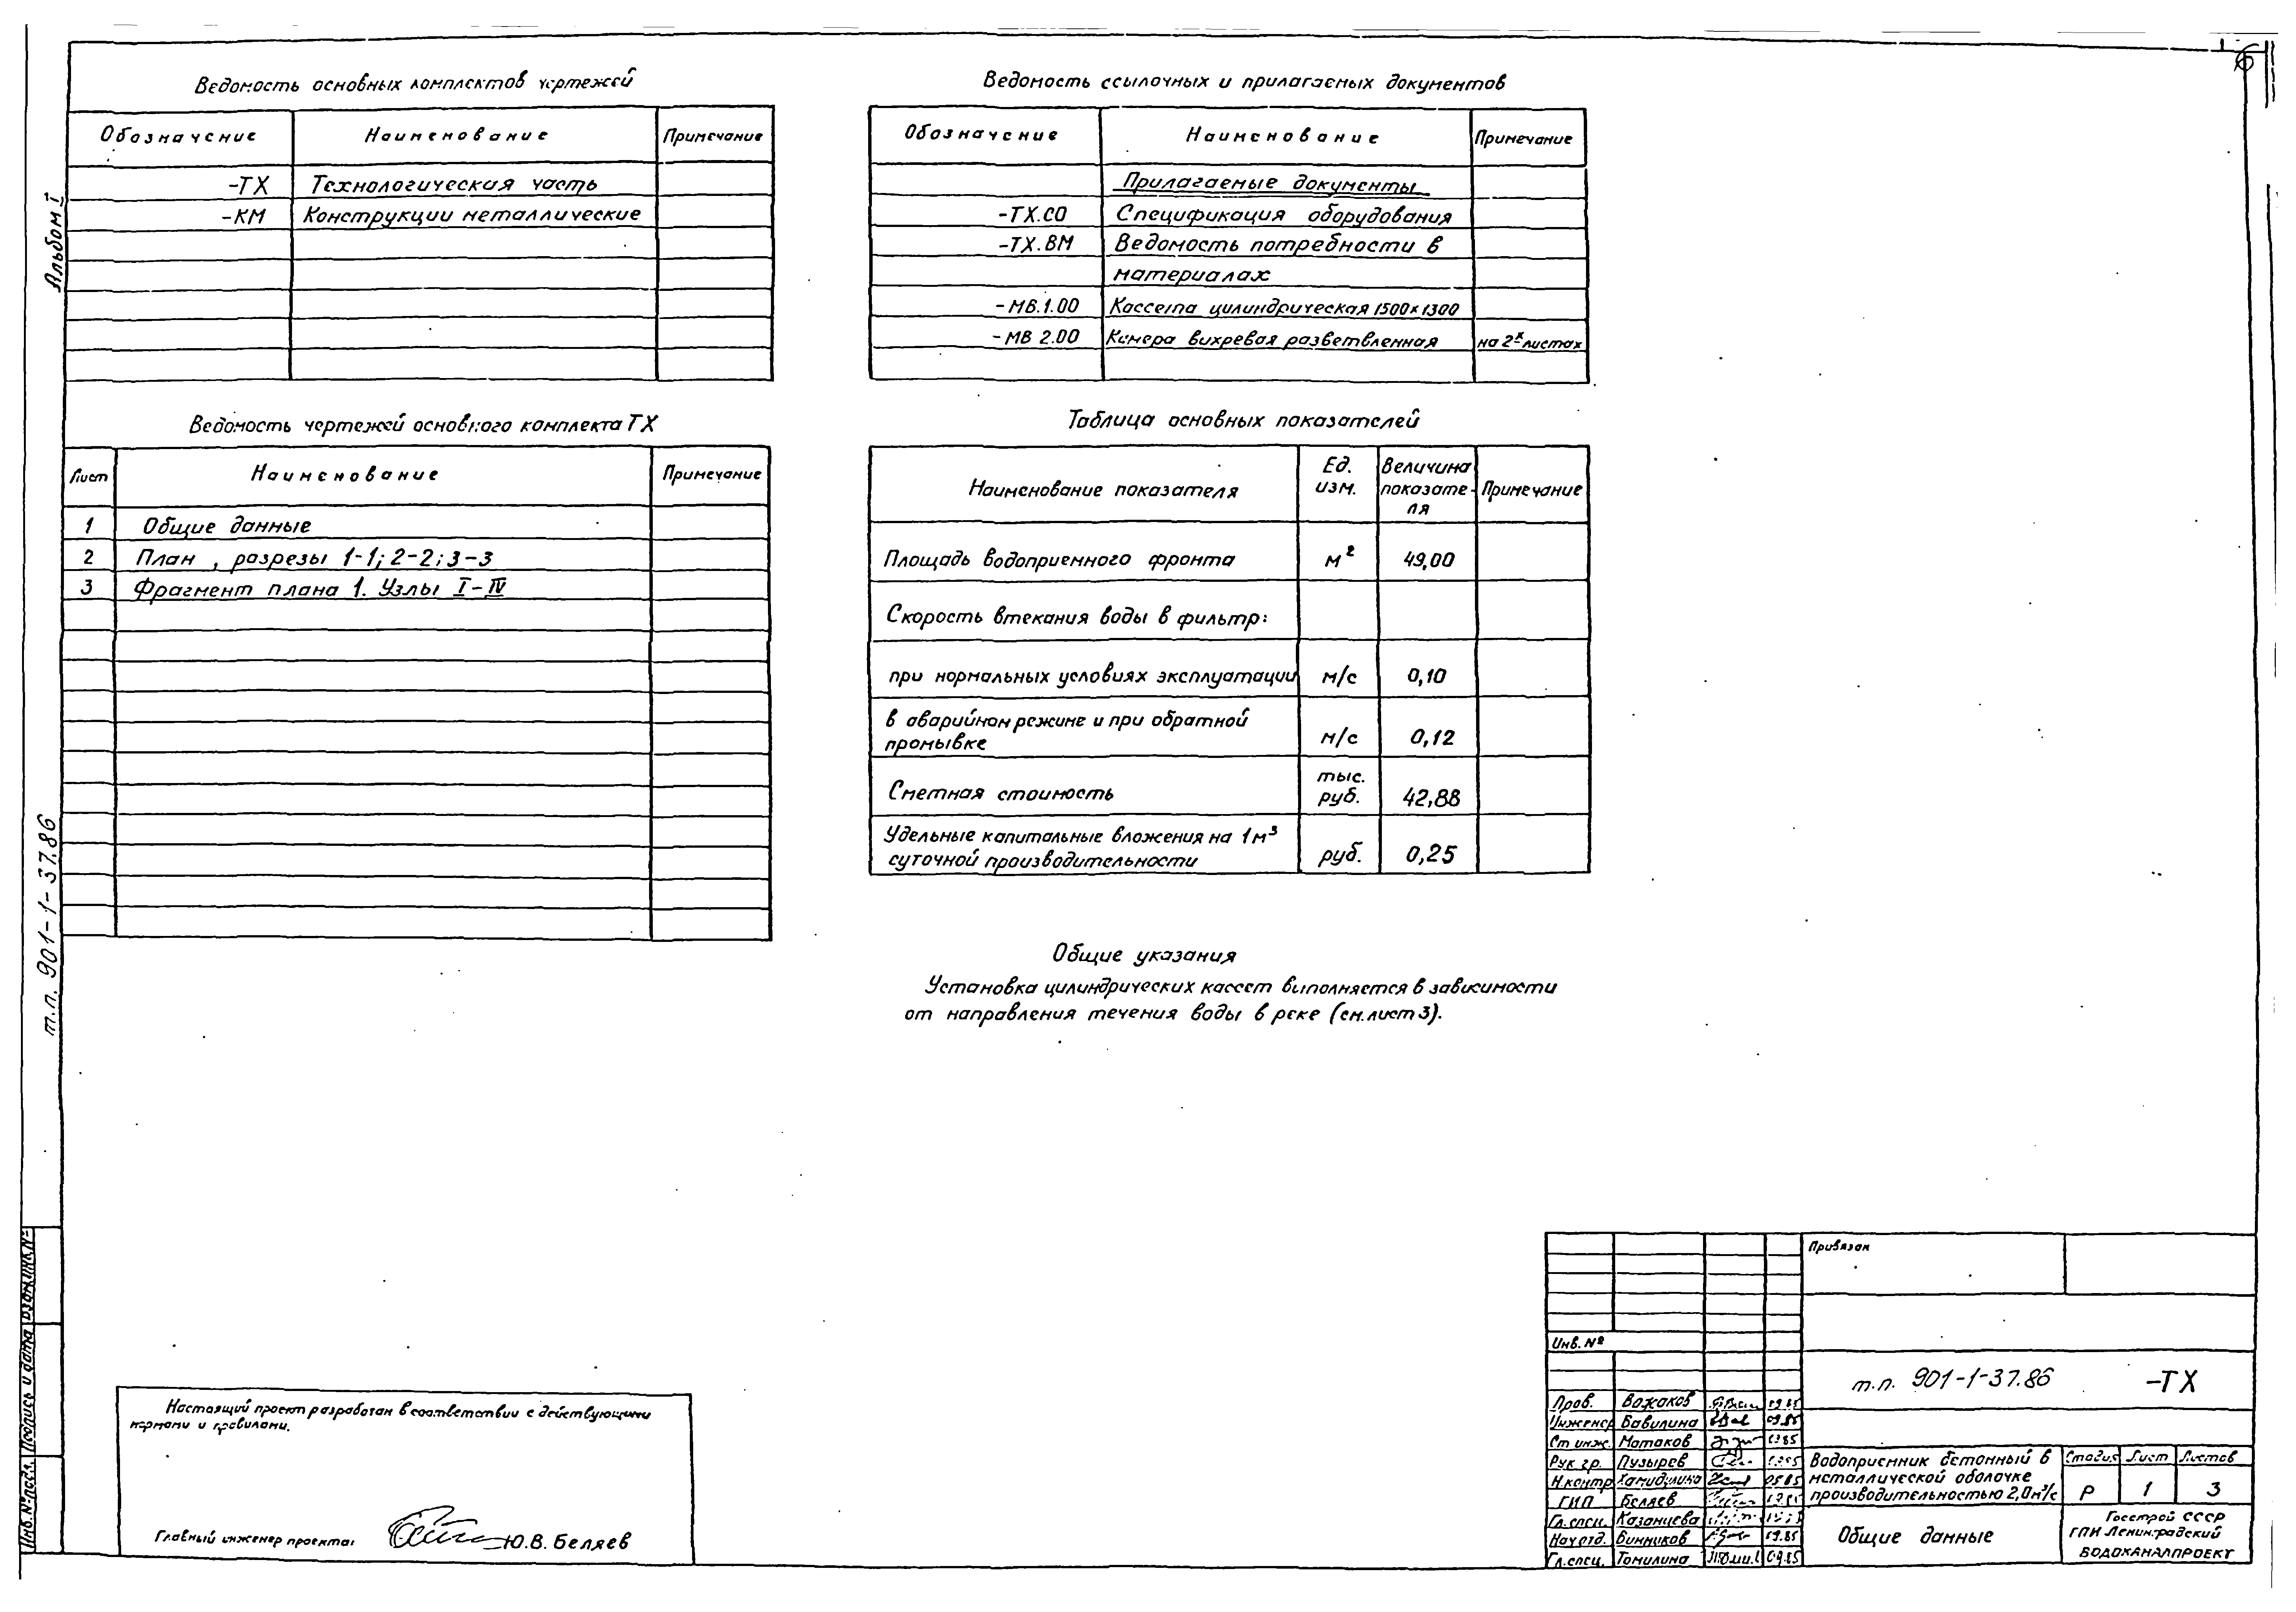 6
Альбом I
т.п. 901-1-37.86
Ведомость основных комплектов чертежей
Обозначение Наименование Примечание
-ТХ Технологическая часть
-КМ Конструкции металлические
Ведомость чертежей основного комплекта ТХ
Лист Наименование Примечание
1 Общие данные
2 План , разрезы 1-1; 2-2; 3-3
3 Фрагмент плана 1. Узлы I-IV
Ведомость ссылочных и прилагаемых документов
Обозначение Наименование Примечание
Прилагаемые документы
-ТХ.СО Спецификация оборудования
-ТХ.ВМ Ведомость потребности в
материалах
-МВ.1.00 Кассета цилиндрическая 1500×1300
-МВ 2.00 Камера вихревая разветвленная на 2х листах
Таблица основных показателей
Наименование показателя Ед. изм. Величина показате-ля Примечание
Площадь водоприемного фронта м² 49,00
Скорость втекания воды в фильтр:
при нормальных условиях эксплуатации м/с 0,10
в аварийном режиме и при обратной
промывке м/с 0,12
Сметная стоимость тыс. руб. 42,88
Удельные капитальные вложения на 1м³
суточной производительности руб. 0,25
Общие указания
Установка цилиндрических кассет выполняется в зависимости
от направления течения воды в реке (см. лист 3).
Настоящий проект разработан в соответствии с действующими
нормами и правилами.
Главный инженер проекта: Ю.В. Беляев
Инв. № подл. Подпись и дата Взам. инв. №
Привязан
Инв. №
т.п. 901-1-37.86 -ТХ
Пров. Вожаков 09.85
Инженер Вавилина 09.85
Ст инж. Матаков 09.85
Рук. гр. Пузырев
Н.контр Хамидулина
ГИП Беляев
Гл. спец. Казанцева
Нач отд. Винников 09.85
Гл. спец. Томилина 09.85
Водоприемник бетонный в
металлической оболочке
производительностью 2,0м³/с
Стадия Лист Листов
Р 1 3
Общие данные
Госстрой СССР
ГПИ Ленинградский
ВОДОКАНАЛПРОЕКТ